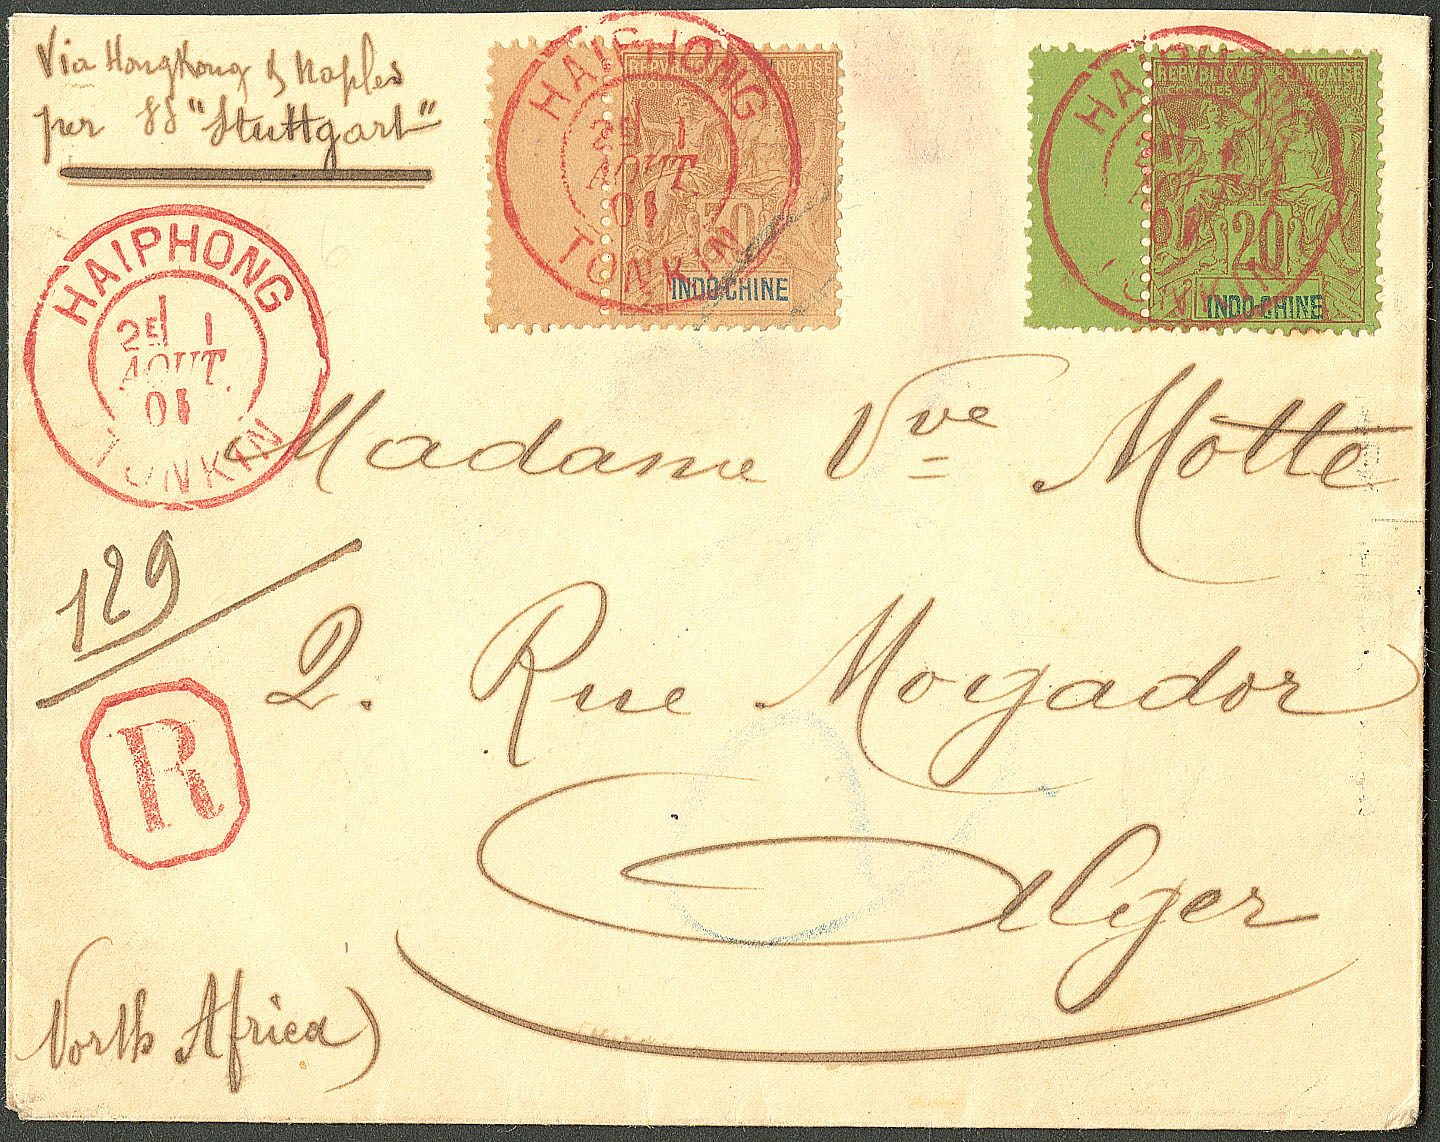 Via HongKong & Naples
per SS "Stuttgart"
REPVBLIQVE FRANÇAISE
COLONIES POSTES
30
INDO-CHINE
HAIPHONG
1
AOUT
01
TONKIN
REPVBLIQVE FRANÇAISE
COLONIES POSTES
20
INDO-CHINE
HAIPHONG
TONKIN
HAIPHONG
2E 1
AOUT.
01
TONKIN
Madame Vve Motte
129
2. Rue Mogador
R
Alger
North Africa)